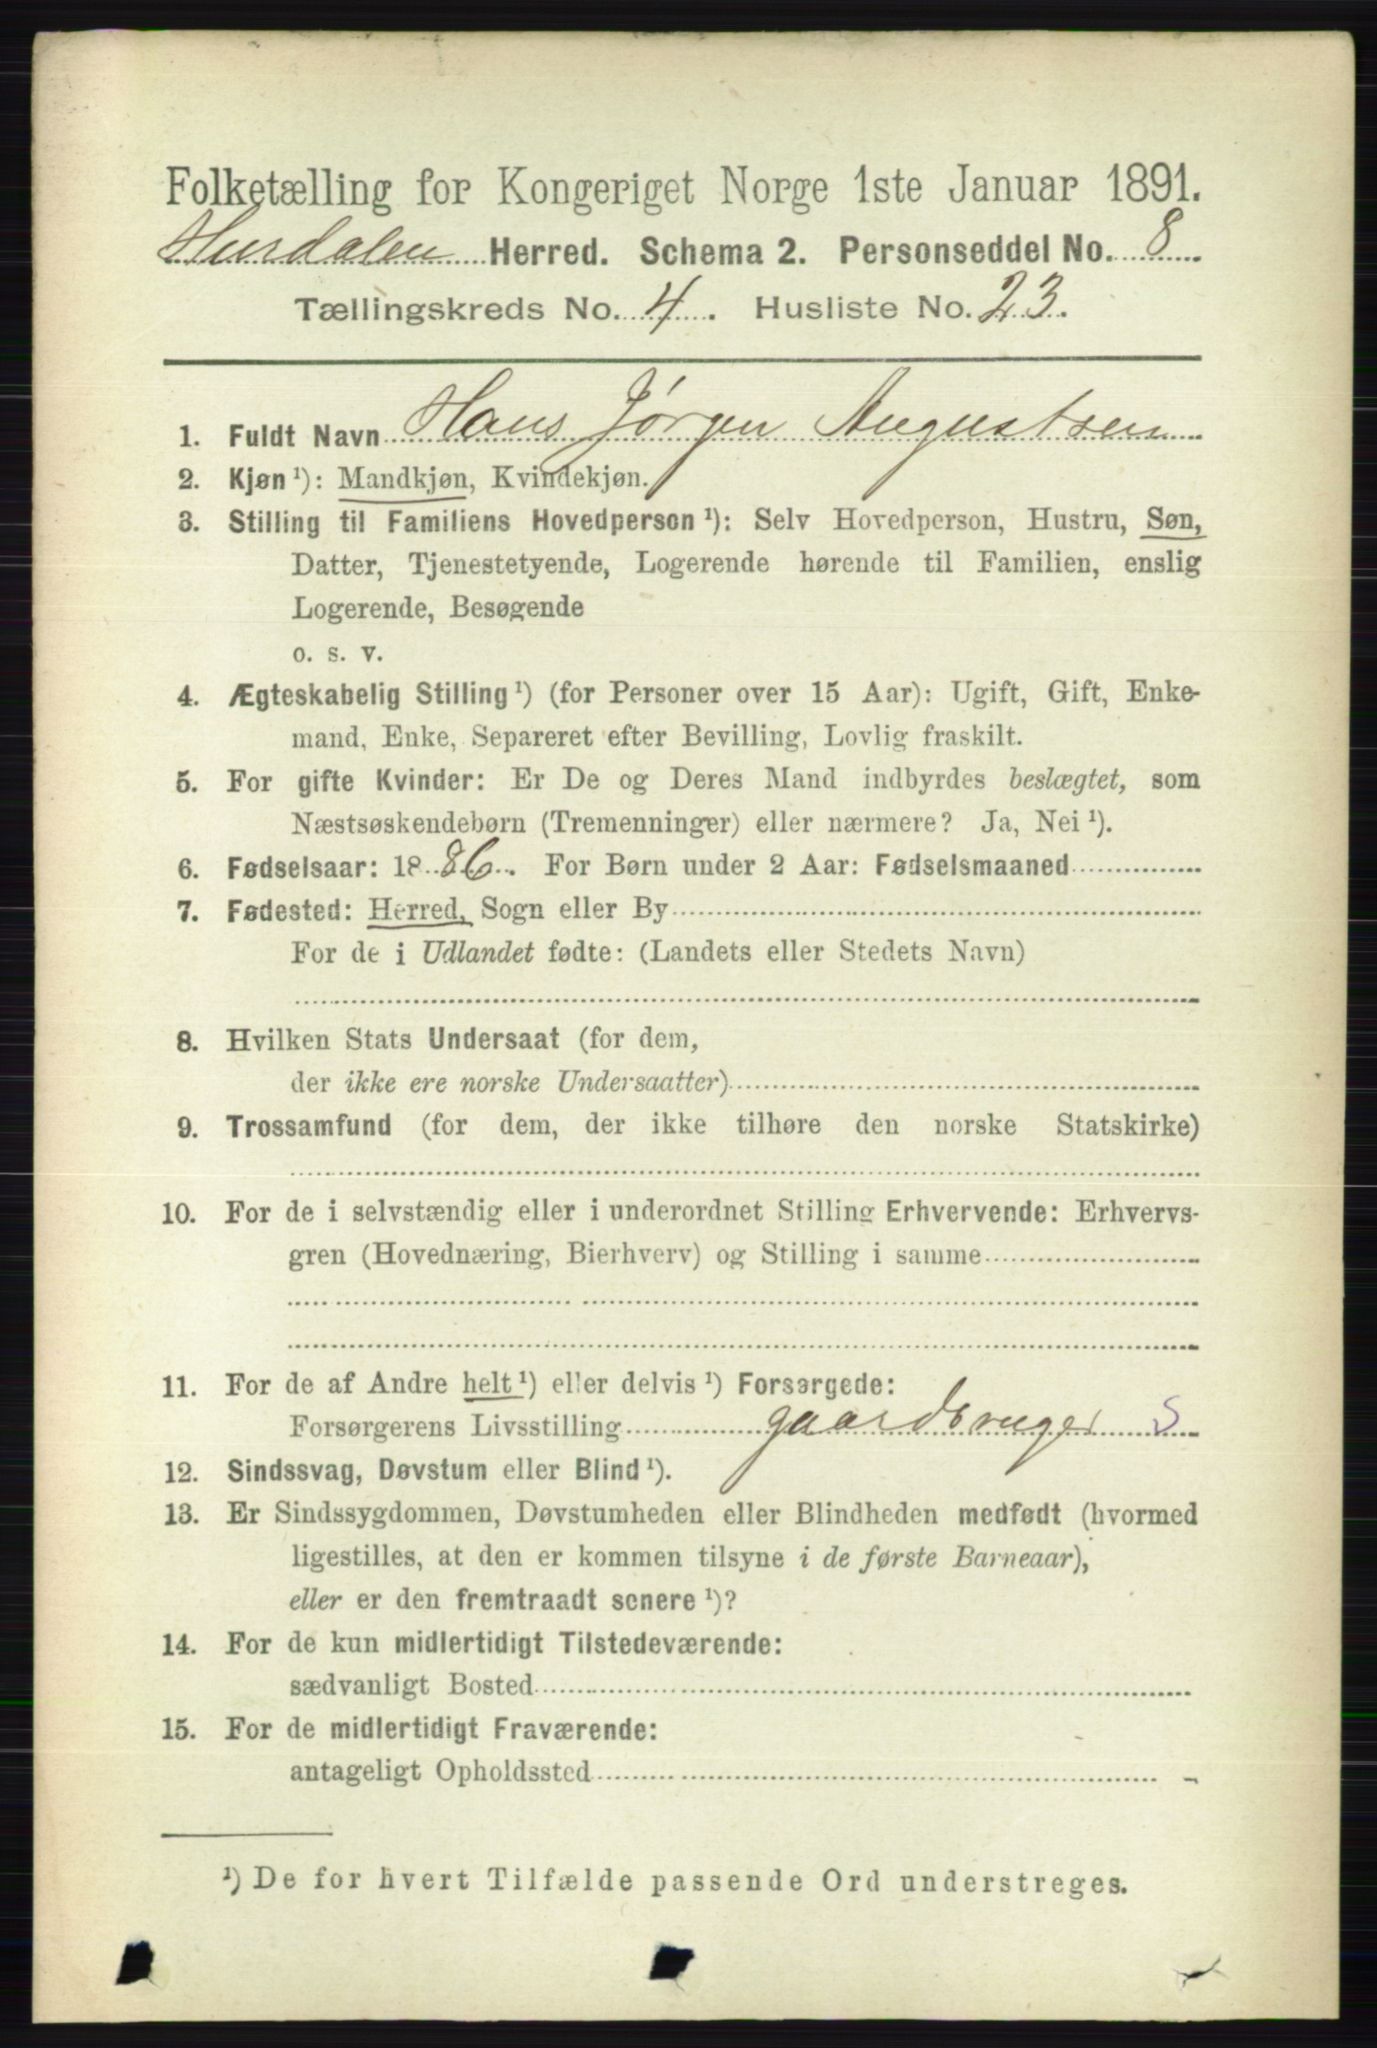 Folketælling for Kongeriget Norge 1ste Januar 1891.
Hurdalen Herred. Schema 2. Personseddel No. 8
Tællingskreds No. 4. Husliste No. 23.
1. Fuldt Navn Hans Jørgen Augustsen
2. Kjøn ¹): Mandkjøn, Kvindekjøn.
3. Stilling til Familiens Hovedperson ¹): Selv Hovedperson, Hustru, Søn,
Datter, Tjenestetyende, Logerende hørende til Familien, enslig
Logerende, Besøgende
o. s. v.
4. Ægteskabelig Stilling ¹) (for Personer over 15 Aar): Ugift, Gift, Enke-
mand, Enke, Separeret efter Bevilling, Lovlig fraskilt.
5. For gifte Kvinder: Er De og Deres Mand indbyrdes beslægtet, som
Næstsøskendebørn (Tremenninger) eller nærmere? Ja, Nei ¹).
6. Fødselsaar: 1886. For Børn under 2 Aar: Fødselsmaaned
7. Fødested: Herred, Sogn eller By
For de i Udlandet fødte: (Landets eller Stedets Navn)
8. Hvilken Stats Undersaat (for dem,
der ikke ere norske Undersaatter)
9. Trossamfund (for dem, der ikke tilhøre den norske Statskirke)
10. For de i selvstændig eller i underordnet Stilling Erhvervende: Erhvervs-
gren (Hovednæring, Bierhverv) og Stilling i samme
11. For de af Andre helt ¹) eller delvis ¹) Forsørgede:
Forsørgerens Livsstilling gaardbruger S
12. Sindssvag, Døvstum eller Blind ¹).
13. Er Sindssygdommen, Døvstumheden eller Blindheden medfødt (hvormed
ligestilles, at den er kommen tilsyne i de første Barneaar),
eller er den fremtraadt senere ¹)?
14. For de kun midlertidigt Tilstedeværende:
sædvanligt Bosted
15. For de midlertidigt Fraværende:
antageligt Opholdssted
¹) De for hvert Tilfælde passende Ord understreges.